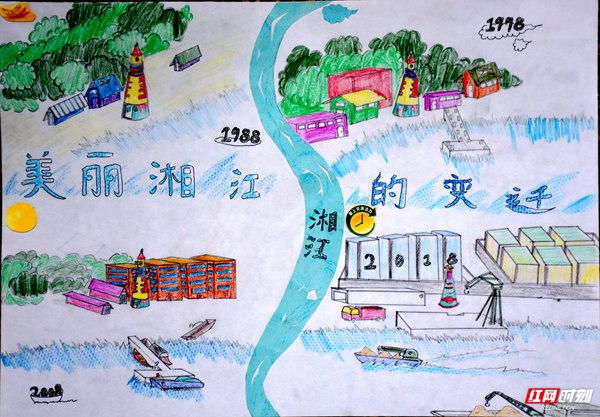 1998
1988
美丽湘江的变迁
湘江
2018
2008
红网时刻